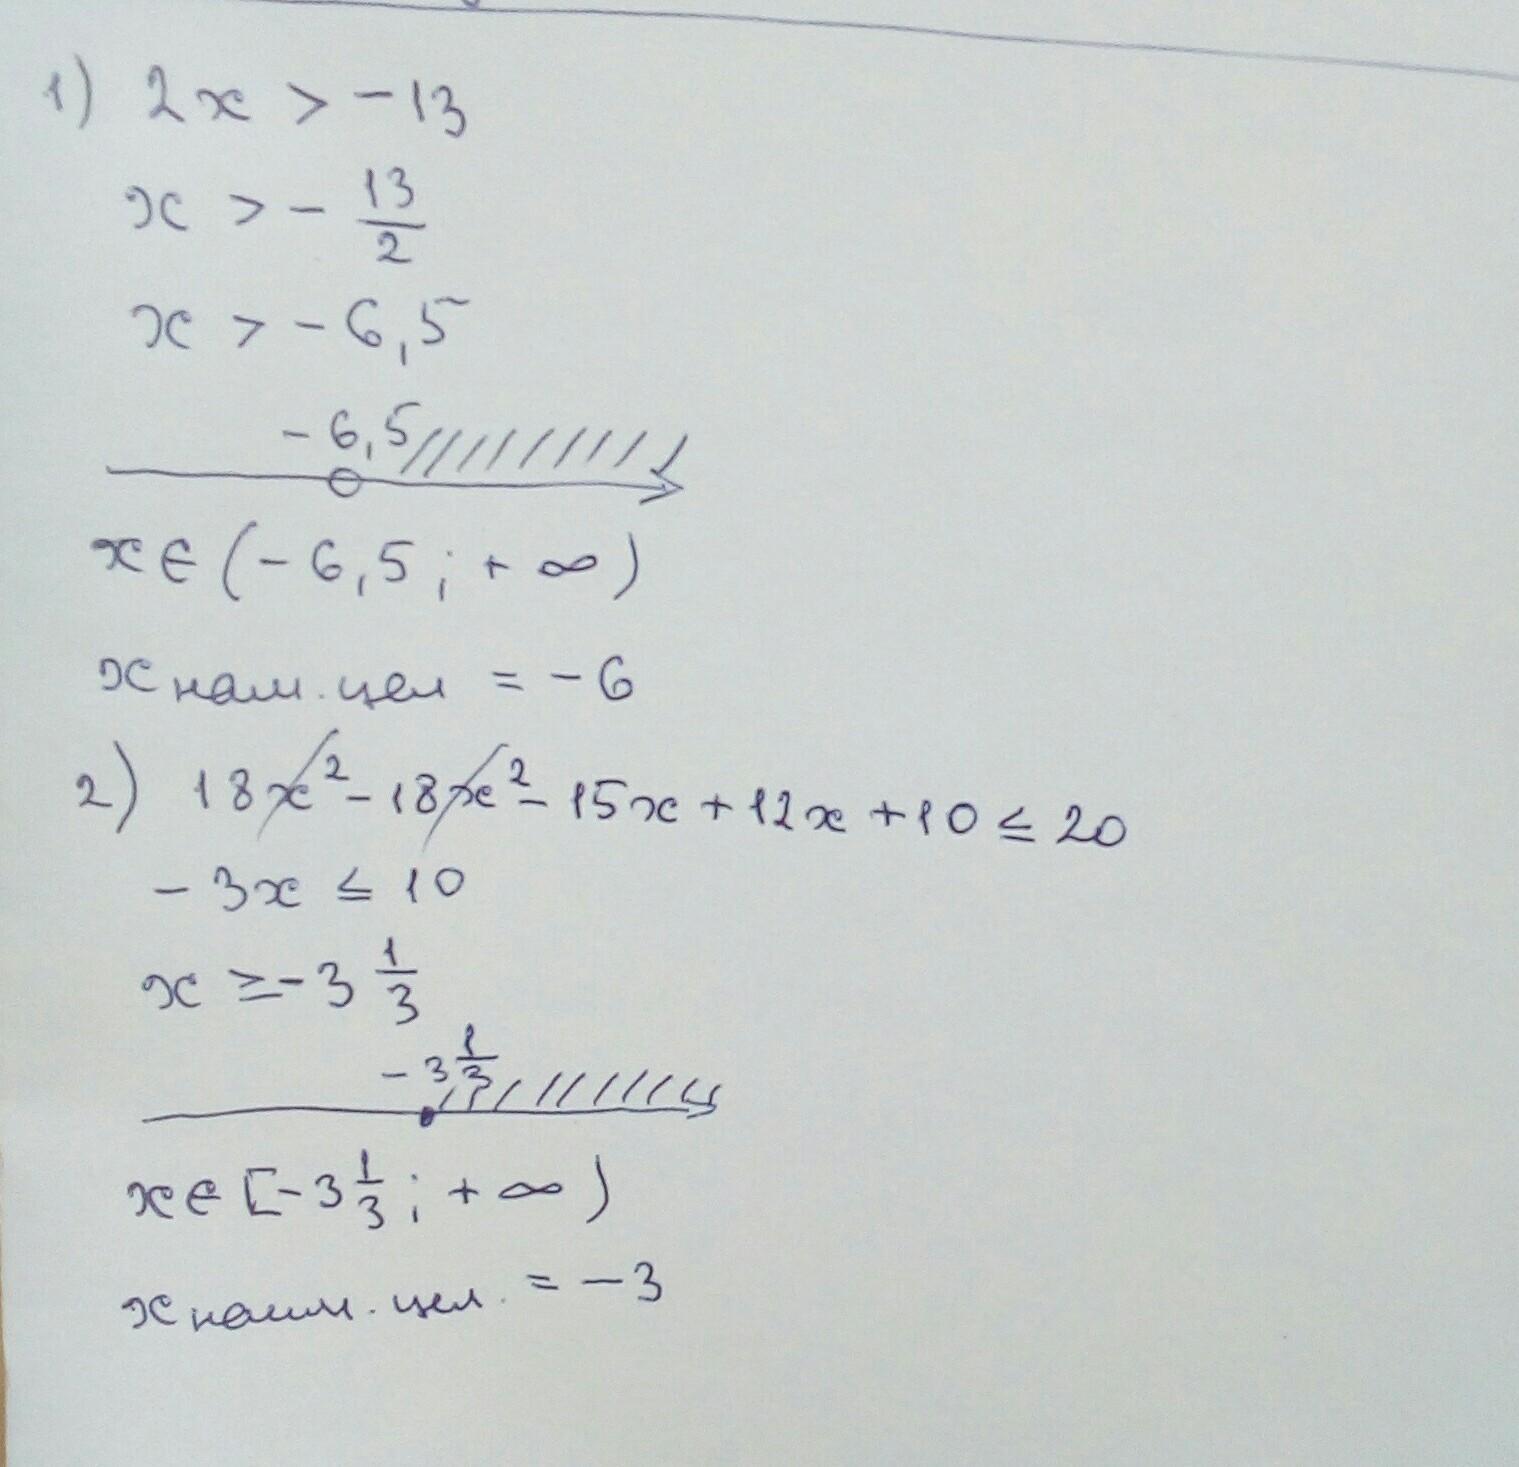 1) 2x > -13
x > - 13/2
x > - 6,5
- 6,5
x ∈ (- 6,5 ; + ∞)
x наим. цел = - 6
2) 18x² - 18x² - 15x + 12x + 10 ≤ 20
- 3x ≤ 10
x ≥ - 3 1/3
- 3 1/3
x ∈ [- 3 1/3 ; + ∞)
x наим. цел. = - 3